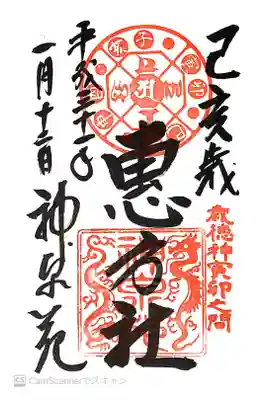 己亥歳
歳徳神寅卯之間
恵方社
平成三十一年
一月十二日
神泉苑
CS CamScannerでスキャン